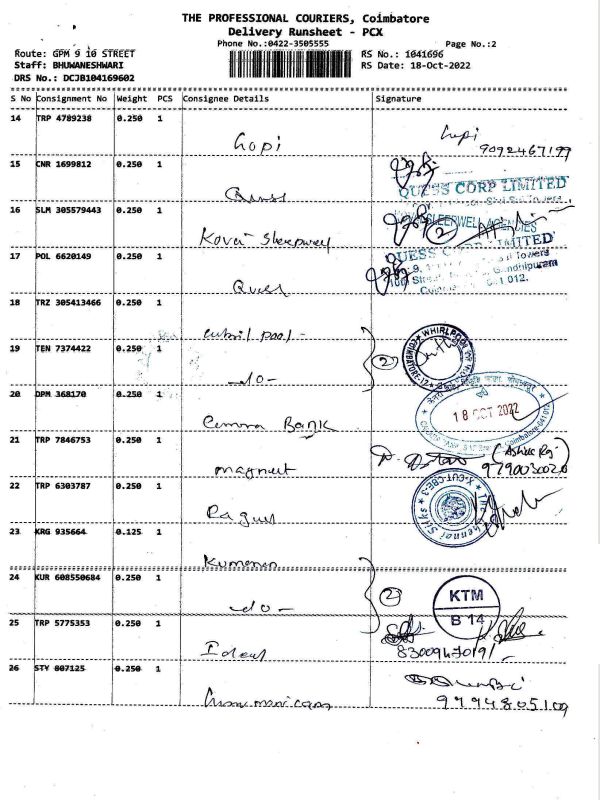 THE PROFESSIONAL COURIERS, Coimbatore
Delivery Runsheet - PCX
Phone No.:0422-3505555
Page No.:2
Route: GPM 9 10 STREET
RS No.: 1041696
Staff: BHUWANESHWARI
RS Date: 18-Oct-2022
DRS No.: DCJB104169602
S No Consignment No Weight PCS Consignee Details Signature
14 TRP 4789238 0.250 1
Gopi Gopi
9092467199
15 CNR 1699812 0.250 1
Quess QUESS CORP LIMITED
16 SLM 305579443 0.250 1
Kovai Sleepwell SLEEPWELL AGENCIES
2
17 POL 6620149 0.250 1
Quess QUESS CORP LIMITED
Towers
Gandhipuram
012.
18 TRZ 305413466 0.250 1
pool -
WHIRLPOOL
COIMBATORE-12
2
19 TEN 7374422 0.250 1
-do-
20 DPM 368170 0.250 1
Bank
18 OCT 2022
21 TRP 7846753 0.250 1
magnut
22 TRP 6303787 0.250 1
Ragul
X-CUT-CBE-3
The Chennai Silks
23 KRG 935664 0.125 1
24 KUR 608550684 0.250 1
-do-
2
KTM
B 14
25 TRP 5775353 0.250 1
8300947019
26 STY 807125 0.250 1
9994805109